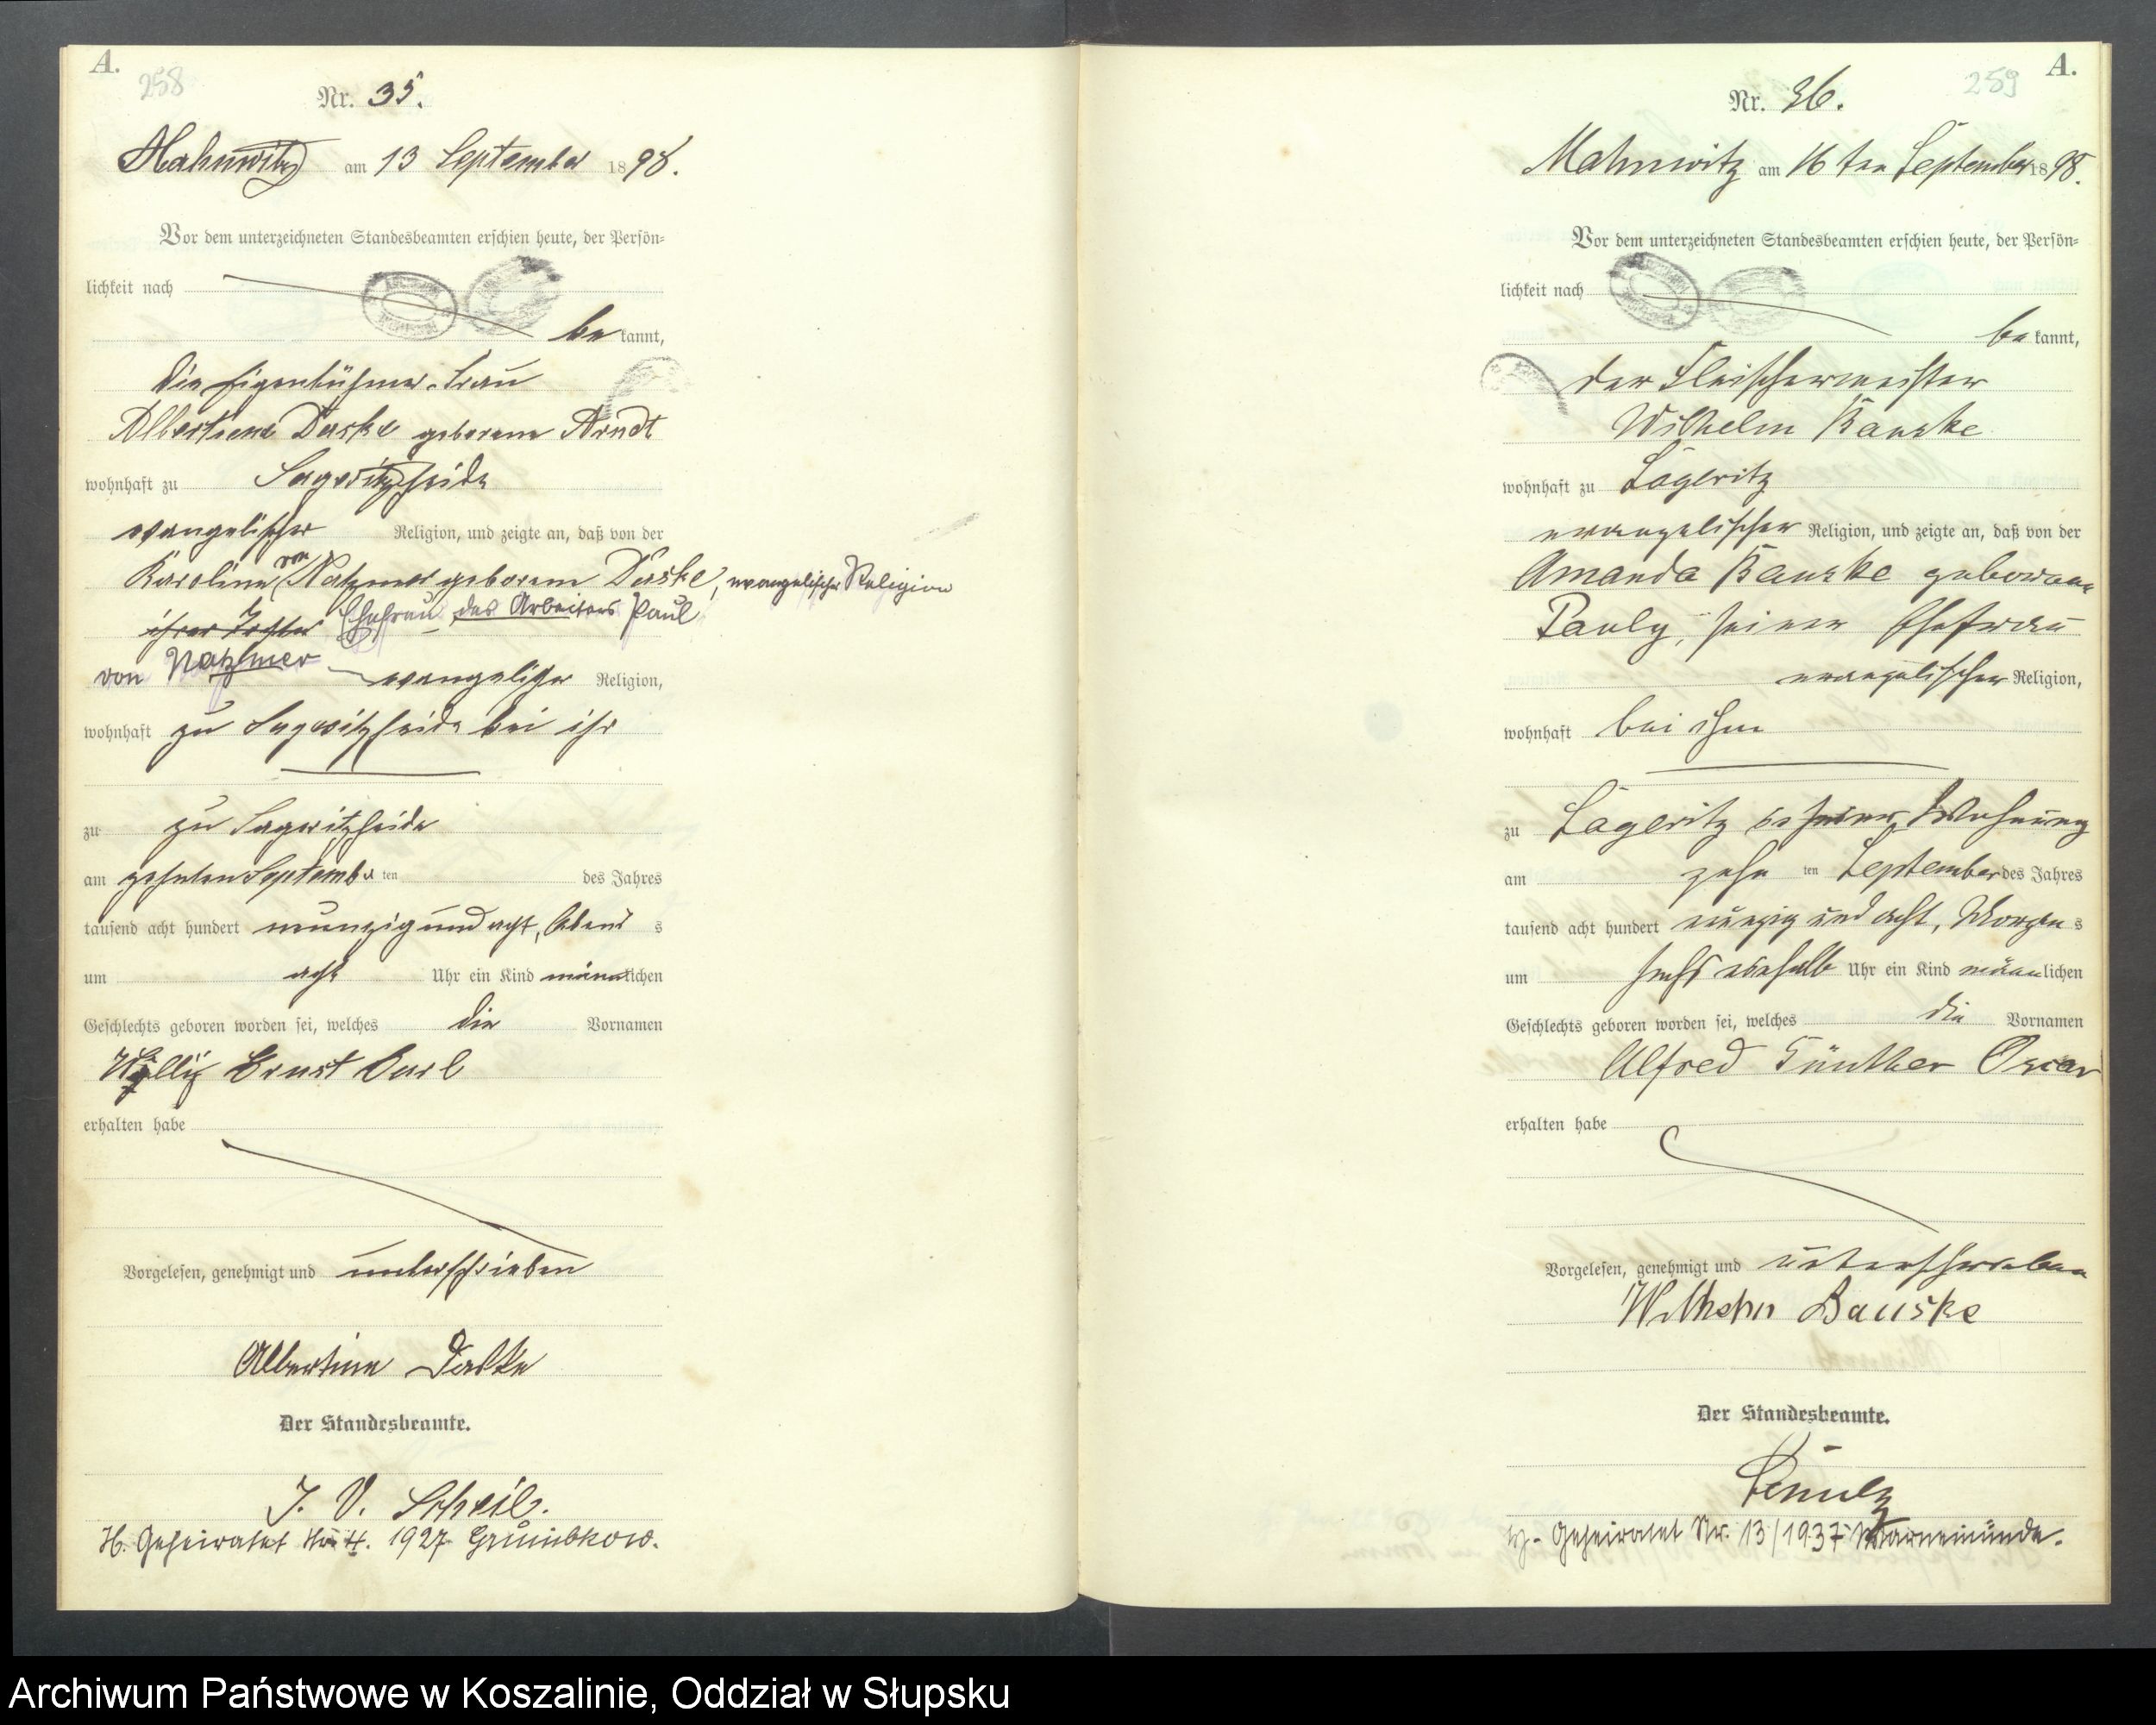 A.
258
Nr. 35.
Mahnwitz am 13 September 1898.
Vor dem unterzeichneten Standesbeamten erschien heute, der Persön-
lichkeit nach
be kannt,
die Eigenthümer-Frau
Albertine Daske geborene Arndt
wohnhaft zu Sageritzheide
evangelischer Religion, und zeigte an, daß von der
Karoline von Natzmer geborene Daske, evangelischer Religion
ihrer Tochter Ehefrau des Arbeiters Paul
von Natzmer evangelischer Religion,
wohnhaft zu Sageritzheide bei ihr
zu zu Sageritzheide
am zehnten September ten des Jahres
tausend acht hundert neunzig und acht, Abend s
um acht Uhr ein Kind männlichen
Geschlechts geboren worden sei, welches die Vornamen
Willy Ernst Karl
erhalten habe
Vorgelesen, genehmigt und unterschrieben
Albertine Daske
Der Standesbeamte.
J. V. Scheil.
H. Geheiratet Nr. 4. 1927 Grumbkow.
259
A.
Nr. 36.
Mahnwitz am 16 ten September 1898.
Vor dem unterzeichneten Standesbeamten erschien heute, der Persön-
lichkeit nach
be kannt,
der Fleischermeister
Wilhelm Bauske
wohnhaft zu Lageritz
evangelischer Religion, und zeigte an, daß von der
Amanda Bauske geborene
Pauly, seiner Ehefrau
evangelischer Religion,
wohnhaft bei ihm
zu Lageritz in seiner Wohnung
am zehn ten September des Jahres
tausend acht hundert neunzig und acht, Morgen s
um sechs einhalb Uhr ein Kind männlichen
Geschlechts geboren worden sei, welches die Vornamen
Alfred Günther Oscar
erhalten habe
Vorgelesen, genehmigt und unterschrieben
Wilhelm Bauske
Der Standesbeamte.
Geheiratet Nr. 13/1937 Warnemünde.
Archiwum Państwowe w Koszalinie, Oddział w Słupsku